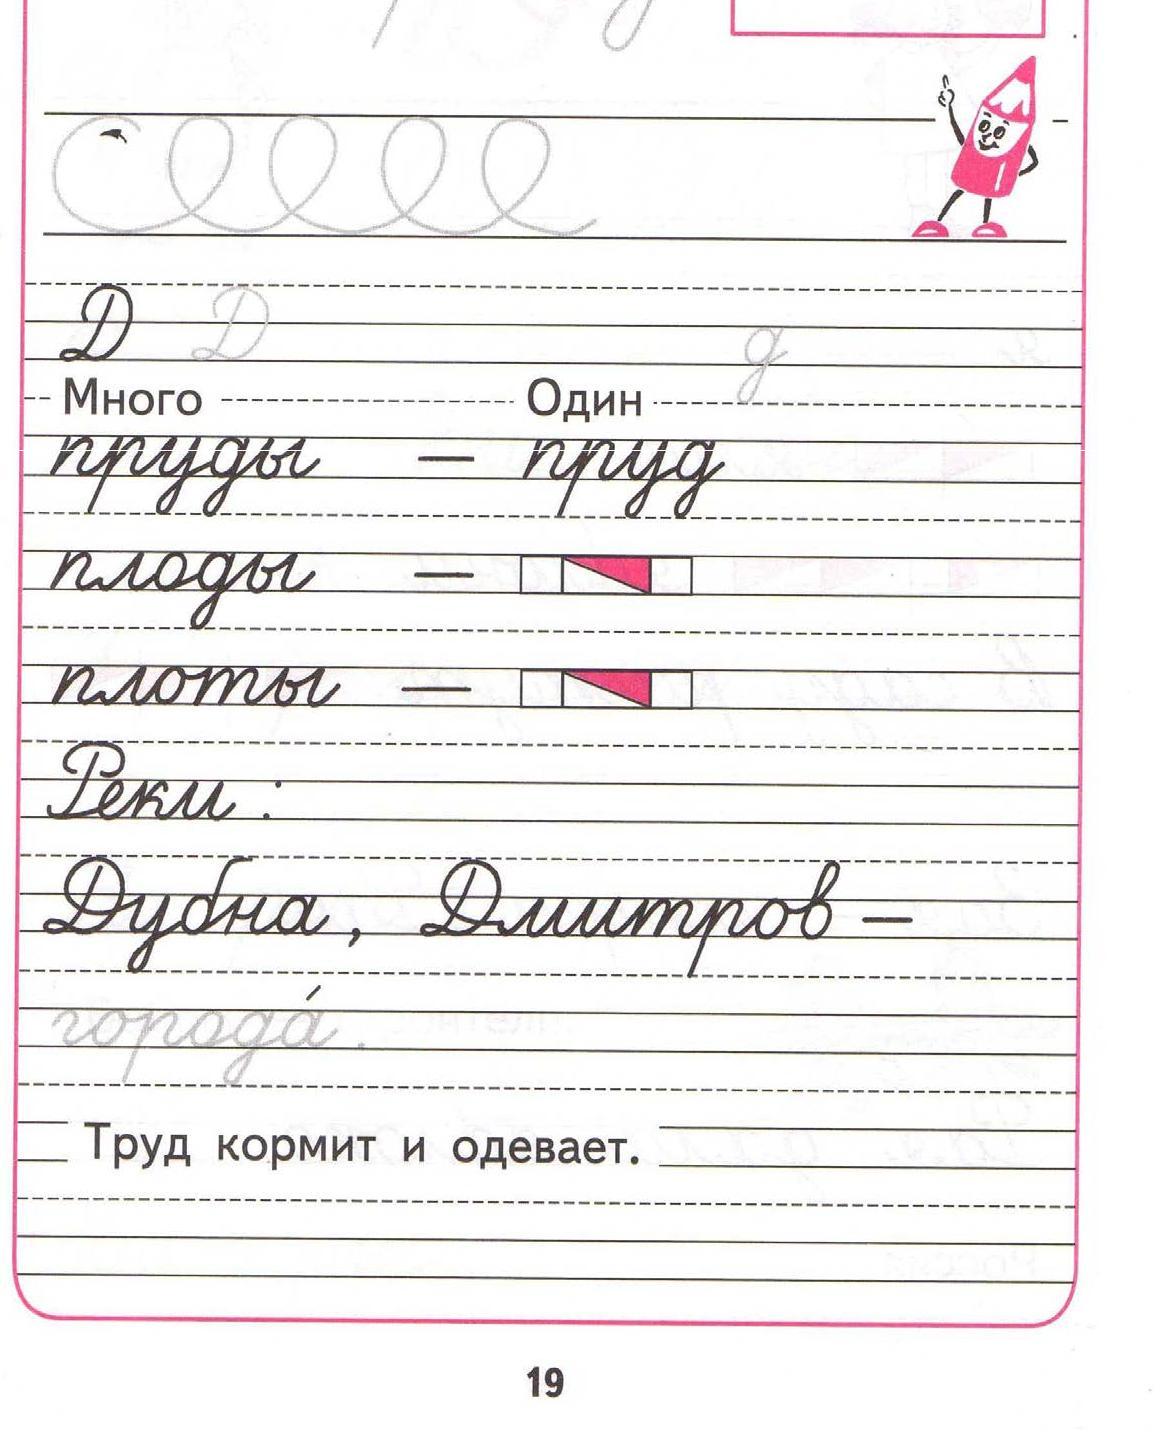 Д Д д
Много Один
пруды — пруд
плоды —
плоты —
Реки :
Дубна, Дмитров —
города́.
Труд кормит и одевает.
19